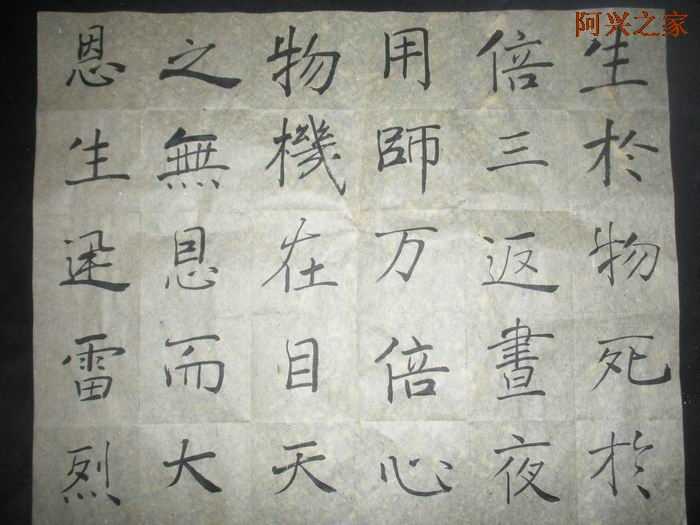 阿兴之家
生扵物死扵
倍三返晝夜
用師万倍心
物機在目天
之無恩而大
恩生迅雷烈